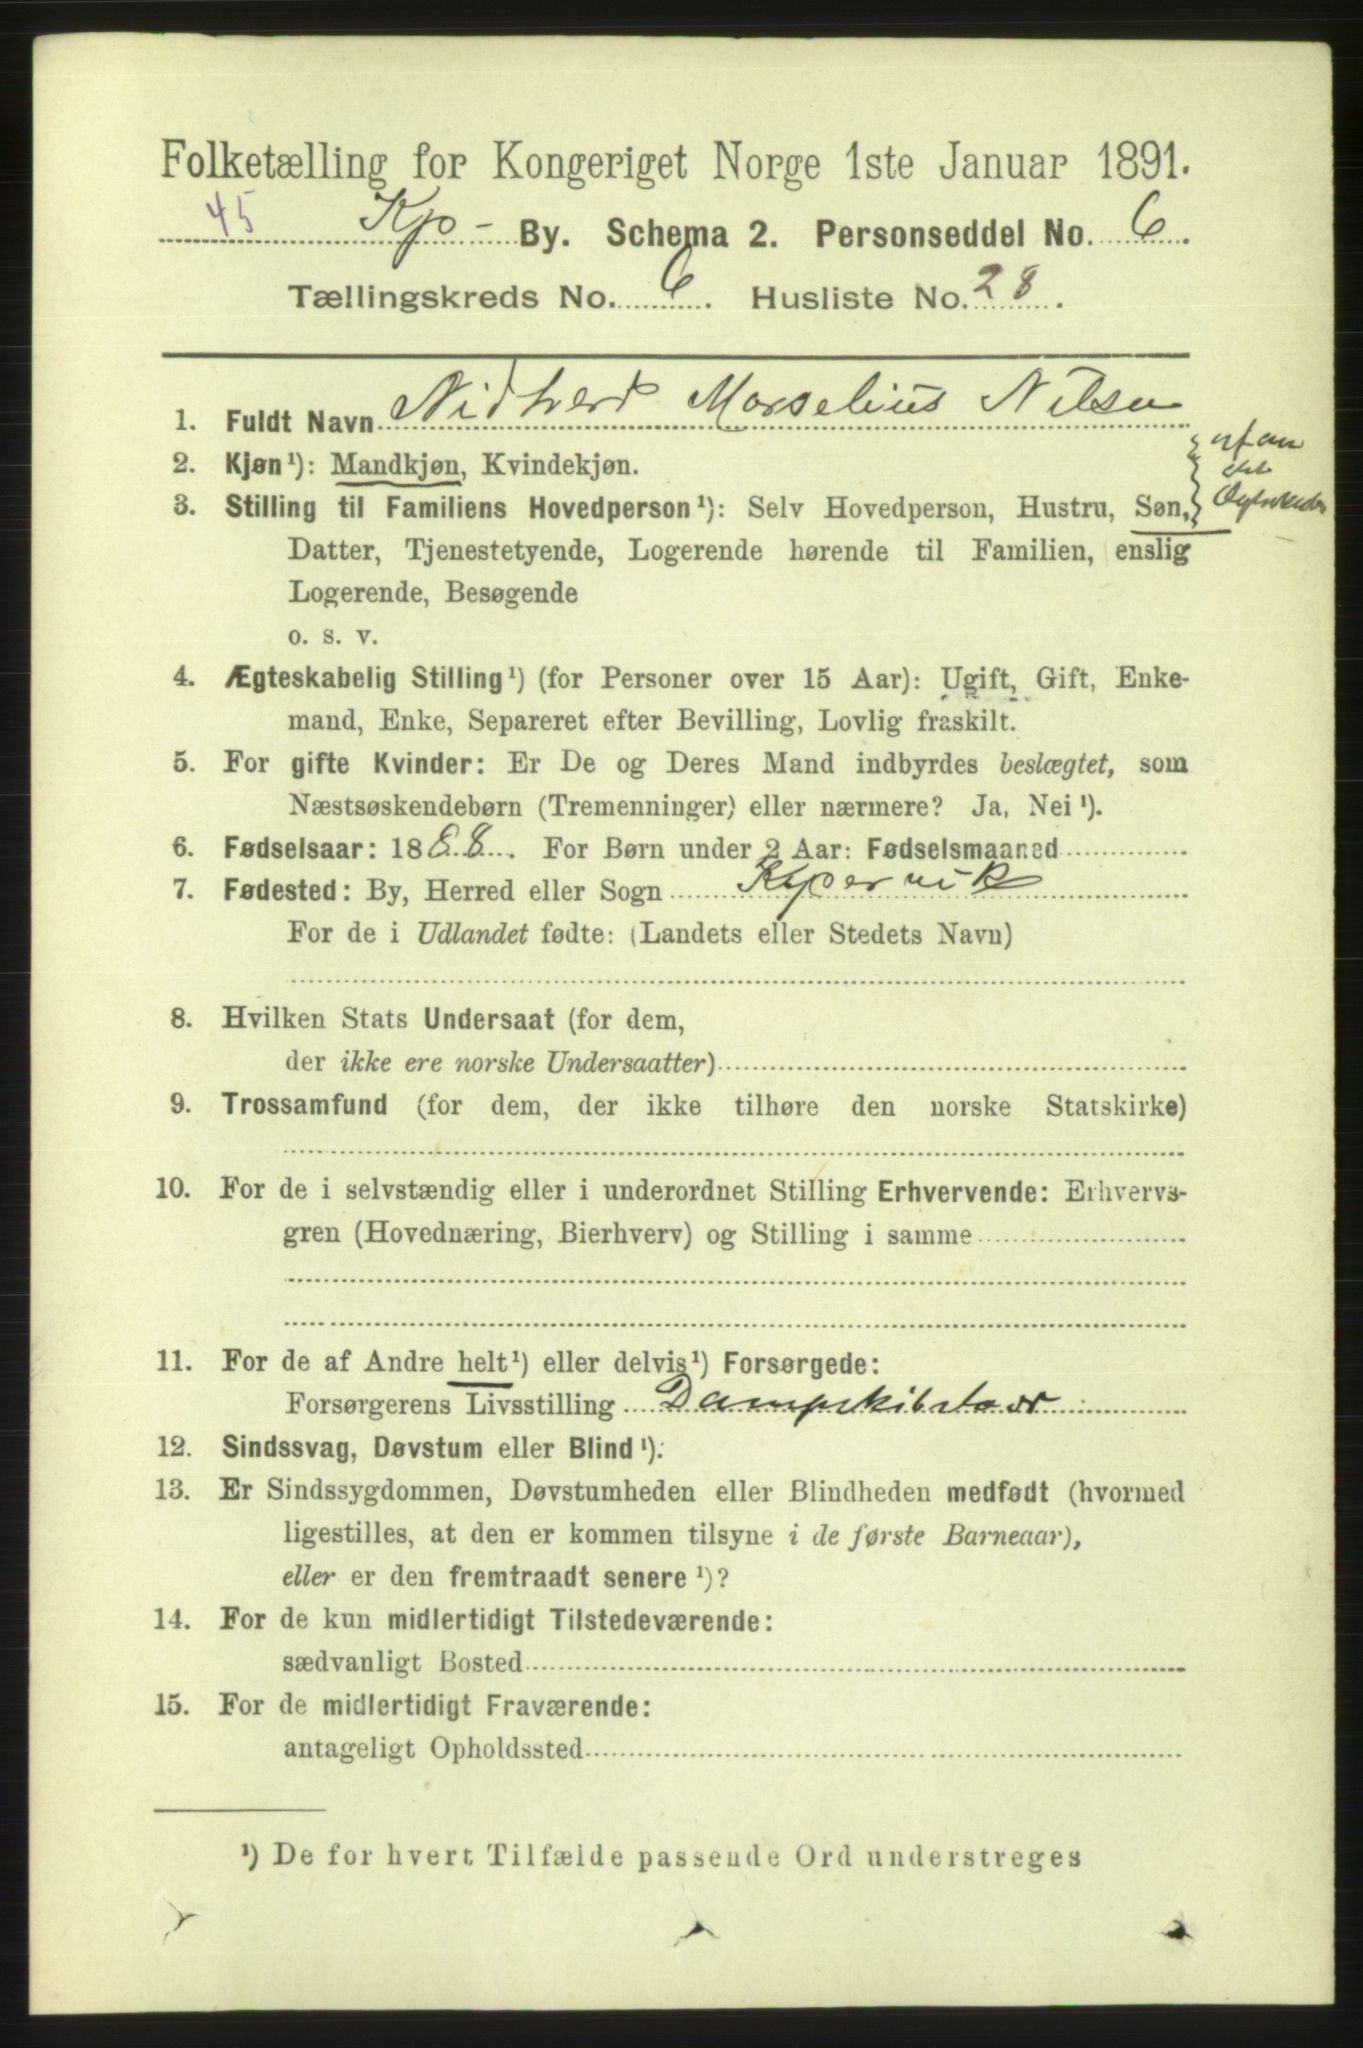 Folketælling for Kongeriget Norge 1ste Januar 1891.
45 Kp- By. Schema 2. Personseddel No. 6.
Tællingskreds No. 6. Husliste No. 28.
1. Fuldt Navn Marselius Nilsen
2. Kjøn¹): Mandkjøn, Kvindekjøn.
3. Stilling til Familiens Hovedperson¹): Selv Hovedperson, Hustru, Søn,
Datter, Tjenestetyende, Logerende hørende til Familien, enslig
Logerende, Besøgende
o. s. v.
4. Ægteskabelig Stilling¹) (for Personer over 15 Aar): Ugift, Gift, Enke-
mand, Enke, Separeret efter Bevilling, Lovlig fraskilt.
5. For gifte Kvinder: Er De og Deres Mand indbyrdes beslægtet, som
Næstsøskendebørn (Tremenninger) eller nærmere? Ja, Nei¹).
6. Fødselsaar: 1888. For Børn under 2 Aar: Fødselsmaaned
7. Fødested: By, Herred eller Sogn Kopervik
For de i Udlandet fødte: (Landets eller Stedets Navn)
8. Hvilken Stats Undersaat (for dem,
der ikke ere norske Undersaatter)
9. Trossamfund (for dem, der ikke tilhøre den norske Statskirke)
10. For de i selvstændig eller i underordnet Stilling Erhvervende: Erhvervs-
gren (Hovednæring, Bierhverv) og Stilling i samme
11. For de af Andre helt¹) eller delvis¹) Forsørgede:
Forsørgerens Livsstilling
12. Sindssvag, Døvstum eller Blind¹).
13. Er Sindssygdommen, Døvstumheden eller Blindheden medfødt (hvormed
ligestilles, at den er kommen tilsyne i de første Barneaar),
eller er den fremtraadt senere¹)?
14. For de kun midlertidigt Tilstedeværende:
sædvanligt Bosted
15. For de midlertidigt Fraværende:
antageligt Opholdssted
¹) De for hvert Tilfælde passende Ord understreges